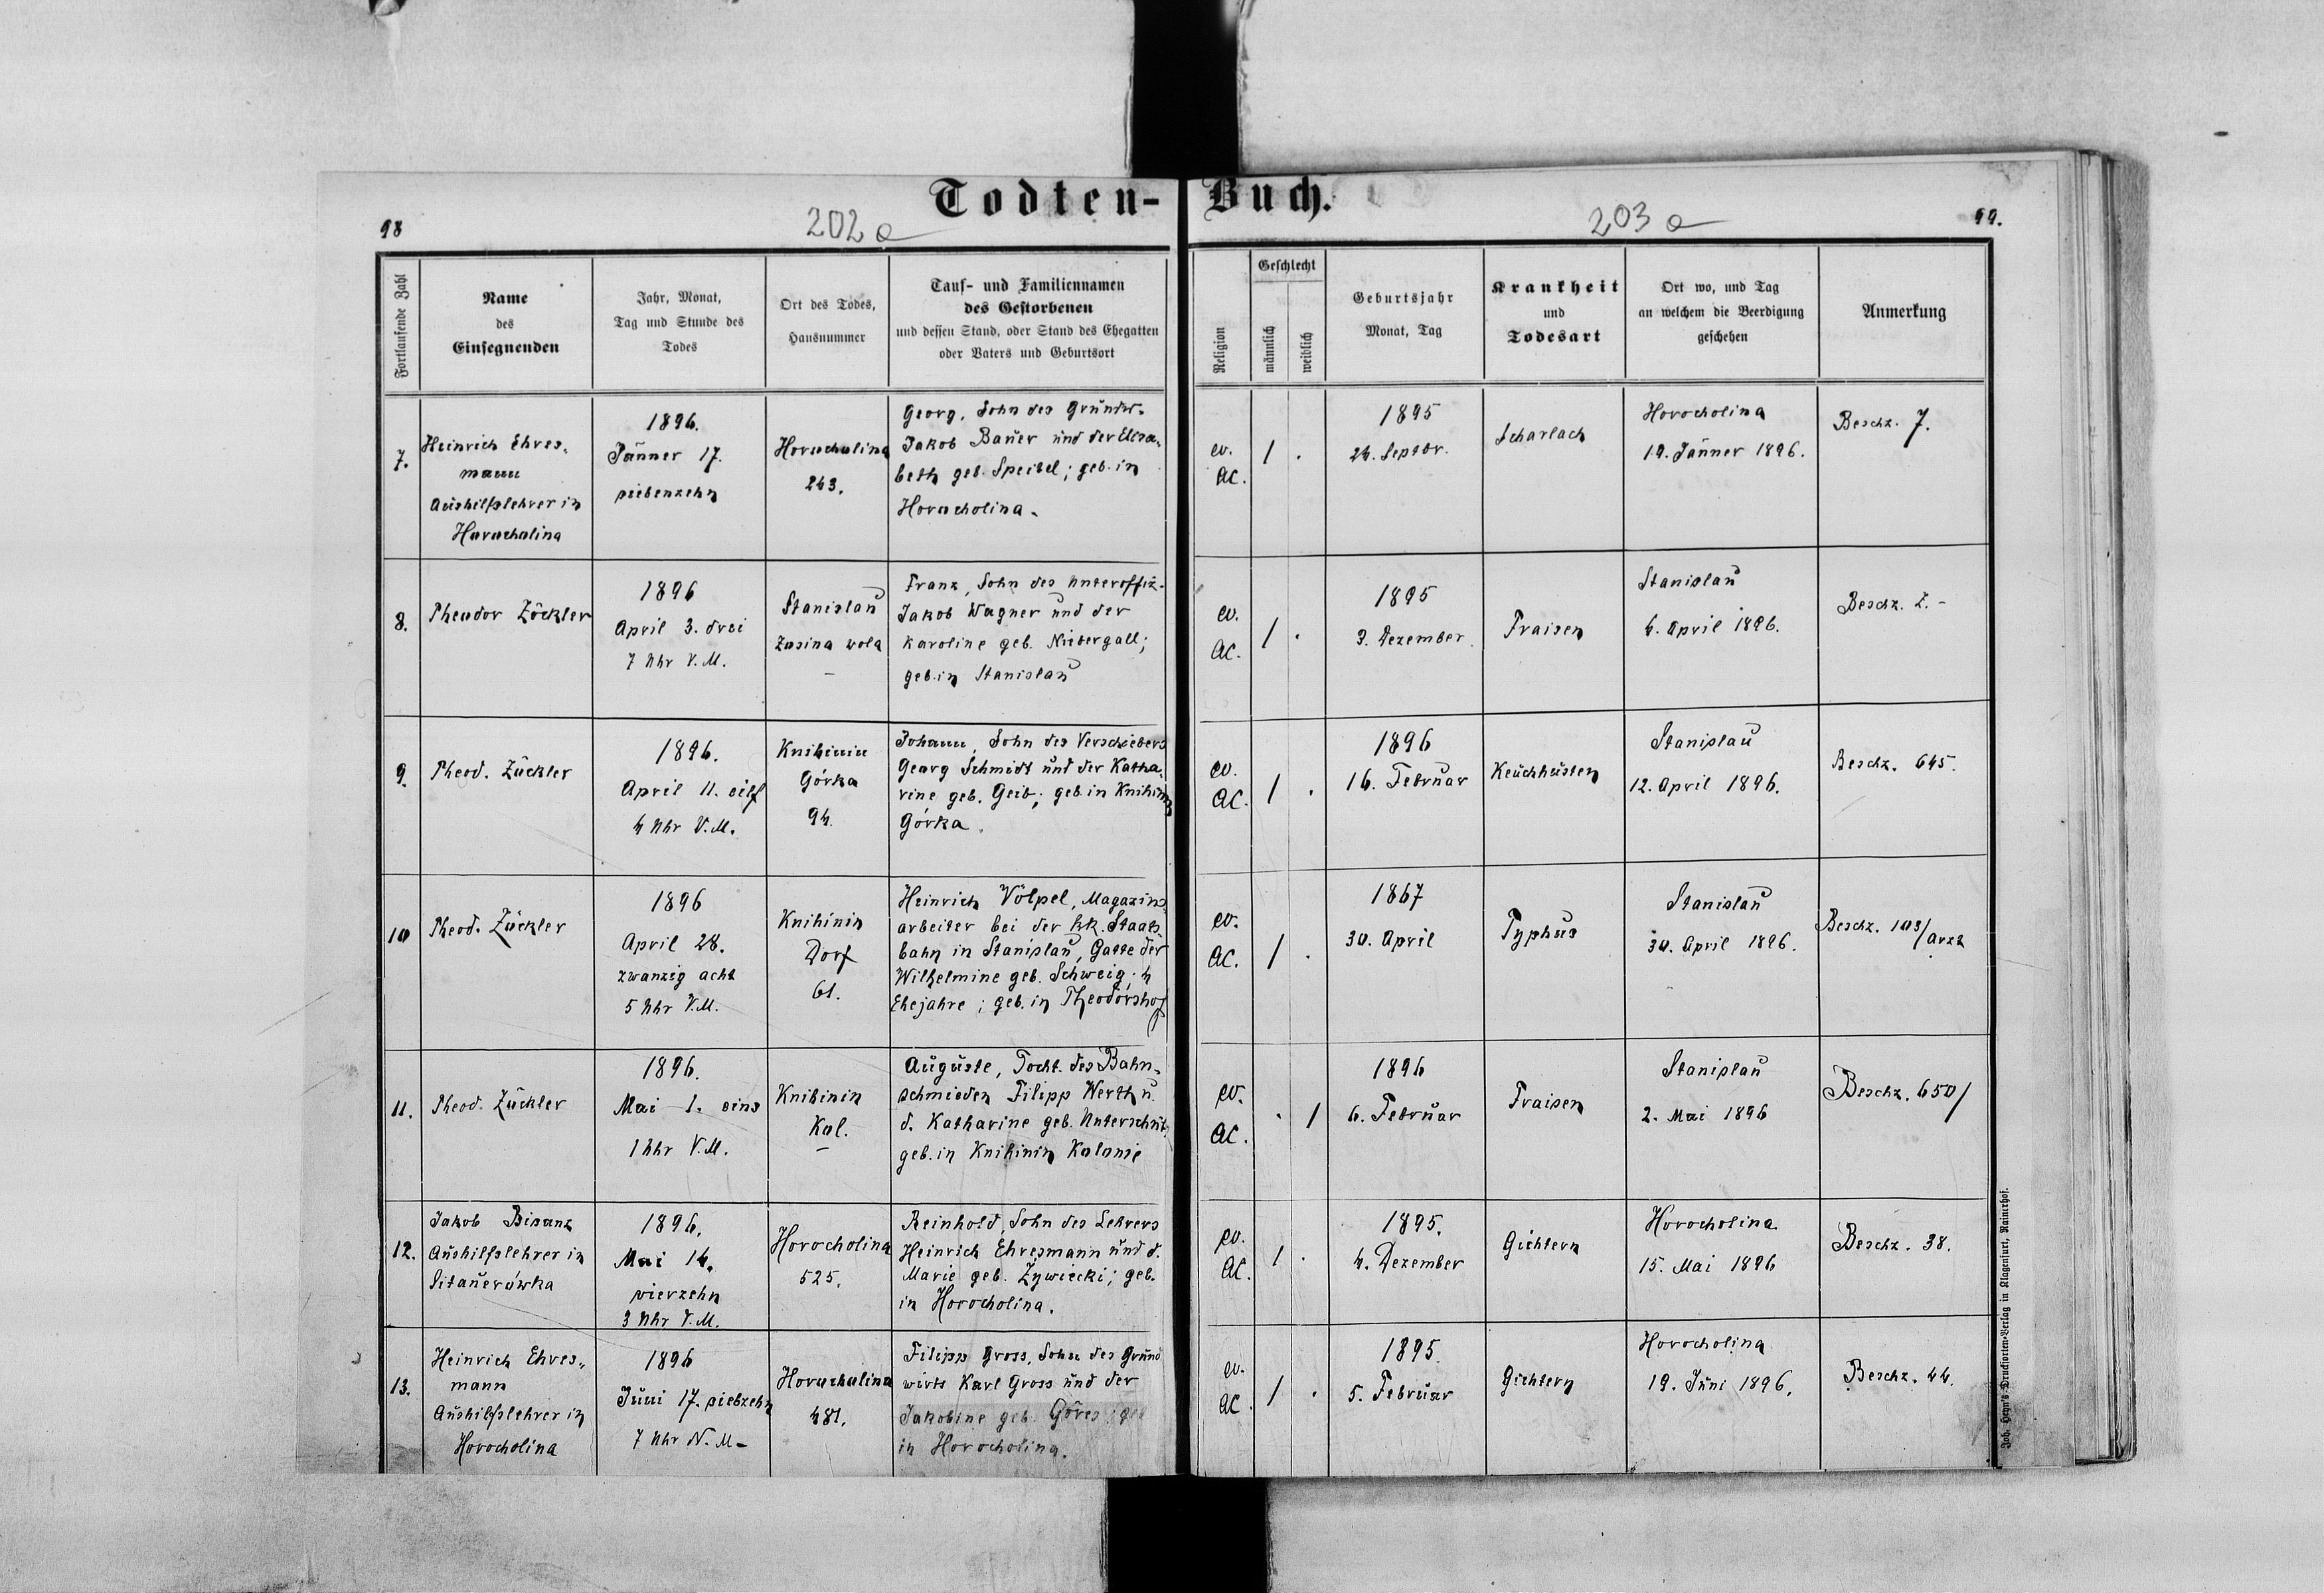 Todten- Buch.
98
202a
203a
99.
Fortlaufende Zahl
Name
des
Einsegnenden
Jahr, Monat,
Tag und Stunde des
Todes
Ort des Todes,
Hausnummer
Tauf- und Familiennamen
des Gestorbenen
und dessen Stand, oder Stand des Ehegatten
oder Vaters und Geburtsort
Religion
Geschlecht
männlich
weiblich
Geburtsjahr
Monat, Tag
Krankheit
und
Todesart
Ort wo, und Tag
an welchem die Beerdigung
geschehen
Anmerkung
7.
Heinrich Ehres-
mann
Aushilfslehrer in
Horocholina
1896.
Jänner 17.
siebenzehn
Horocholina
243.
Georg, Sohn des Grundw.
Jakob Bauer und der Elisa-
beth geb. Speitel; geb. in
Horocholina.
ev.
AC.
1 .
1895
24. Septbr.
Scharlach
Horocholina
19. Jänner 1896.
Beschz. 7.
8.
Theodor Zöckler
1896
April 3. drei
7 Uhr V.M.
Stanislau
Zosina wola
–
Franz, Sohn des Unteroffiz.
Jakob Wagner und der
Karoline geb. Niebergall;
geb. in Stanislau
ev.
AC.
1 .
1895
3. Dezember.
Fraisen
Stanislau
4. April 1896.
Beschz. 2.-
9.
Theod. Zöckler
1896.
April 11. eilf
4 Uhr V.M.
Knihinin
Górka
94.
Johann, Sohn des Verschiebers
Georg Schmidt und der Katha-
rine geb. Geib; geb. in Knihinin
Górka.
ev.
AC.
1 .
1896
16. Februar
Keuchhusten
Stanislau
12. April 1896.
Beschz. 645.
10
Theod. Zöckler
1896
April 28.
zwanzig acht
5 Uhr V.M.
Knihinin
Dorf
61.
Heinrich Völpel, Magazins-
arbeiter bei der k.k. Staats-
bahn in Stanislau, Gatte der
Wilhelmine geb. Schweig; 4
Ehejahre; geb. in Theodorshof
ev.
AC.
1 .
1867
30. April
Typhus
Stanislau
30. April 1896.
Beschz. 103/Arzt
11.
Theod. Zöckler
1896.
Mai 1. eins
1 Uhr V.M.
Knihinin
Kol.
–
Auguste, Tocht. des Bahn-
schmieden Filipp Werth u.
d. Katharine geb. Unterschütz
geb. in Knihinin Kolonie
ev.
AC.
. 1
1896
6. Februar
Fraisen
Stanislau
2. Mai 1896
Beschz. 650/
12.
Jakob Bisanz
Aushilfslehrer in
Sitauerówka
1896.
Mai 14.
vierzehn
3 Uhr V.M.
Horocholina
525.
Reinhold, Sohn des Lehrers
Heinrich Ehresmann und d.
Marie geb. Żywiecki; geb.
in Horocholina.
ev.
AC.
1 .
1895.
4. Dezember
Gichtern
Horocholina
15. Mai 1896
Beschz. 38.
13.
Heinrich Ehres-
mann
Aushilfslehrer in
Horocholina
1896
Juni 17. siebzehn
7 Uhr N.M.
Horocholina
481.
Filipp Gross, Sohn des Grund
wirts Karl Gross und der
Jakobine geb. Göres; geb
in Horocholina.
ev.
AC
1 .
1895.
5. Februar
Gichtern
Horocholina
19. Juni 1896.
Beschz. 44.
Joh. Heyn's Drucksorten-Verlag in Klagenfurt, Rainerhof.